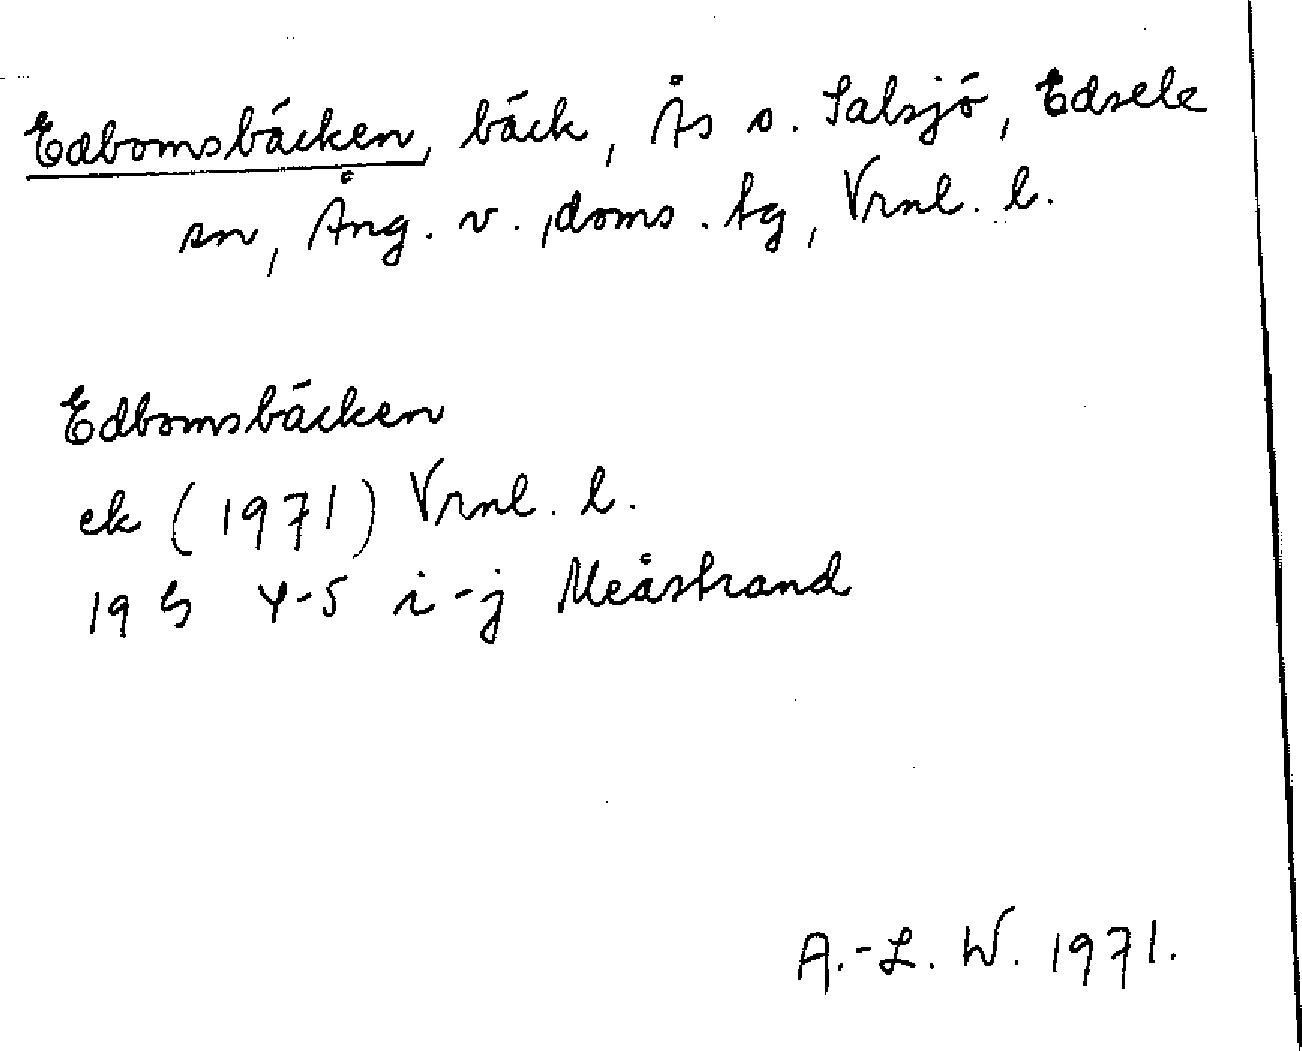 Edbomsbäcken, bäck, Ås o. Salsjö, Edsele
sn, Ång. v. doms. tg, Vrnl. l.
Edbomsbäcken
ek (1971) Vrnl. l.
19 G 4-5 i-j Meåstrand
A.-L. W. 1971.